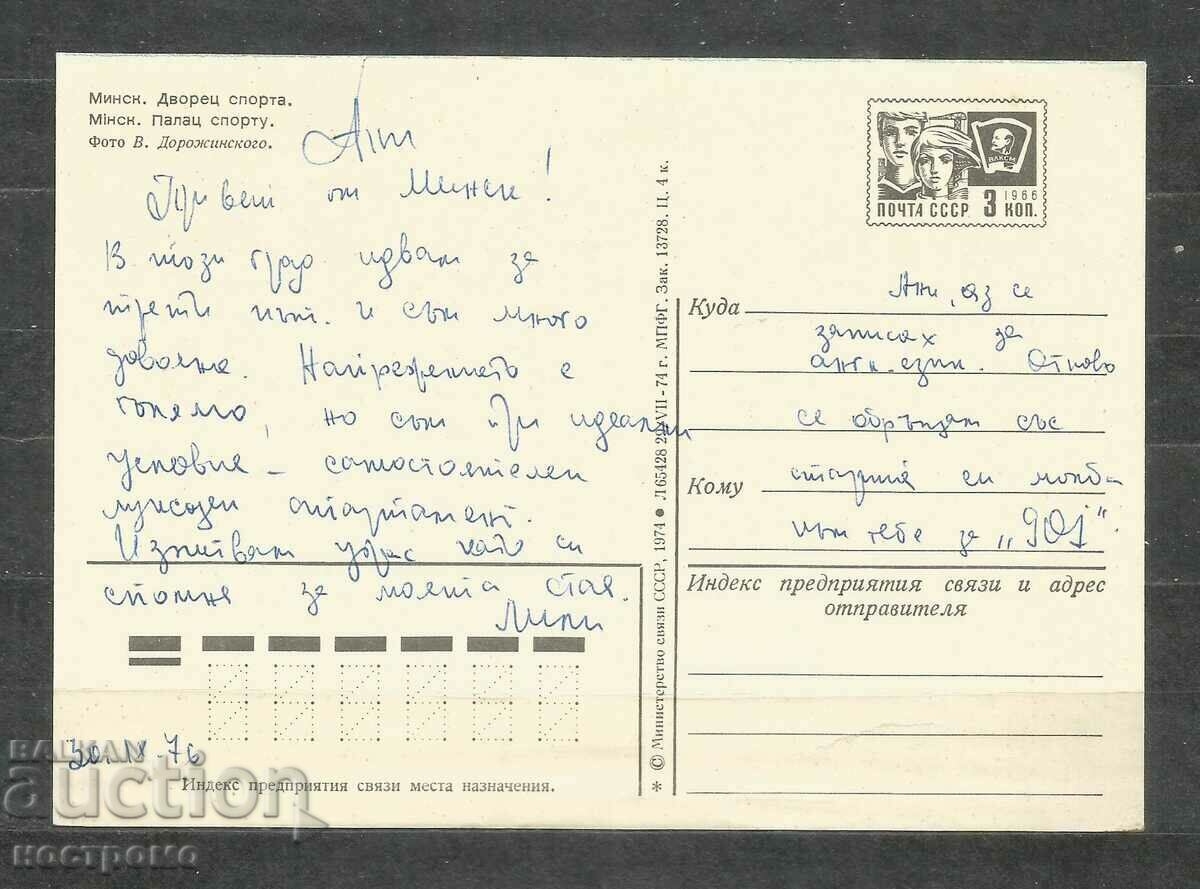 Минск. Дворец спорта.
Мінск. Палац спорту.
Фото В. Дорожинского.
Ани
Привет от Минск!
В този град идвам за
трети път. и съм много
доволна. Напрежението е
голямо, но съм при идеални
условия – самостоятелен
луксозен апартамент.
Изпитвам ужас като си
спомня за моята стая.
Лили
30.IX.76
Индекс предприятия связи места назначения.
* © Министерство связи СССР, 1974 ● Л 65428 29/VII - 74 г. МПФГ. Зак. 13728. Ц. 4 к.
ВЛКСМ
1966
ПОЧТА СССР 3 КОП.
Ани, аз се
Куда
записах за
англ. език. Отново
се обръщам със
Кому
старата си молба
към тебе за „901“.
Индекс предприятия связи и адрес
отправителя
BALKAN
auction
костромо